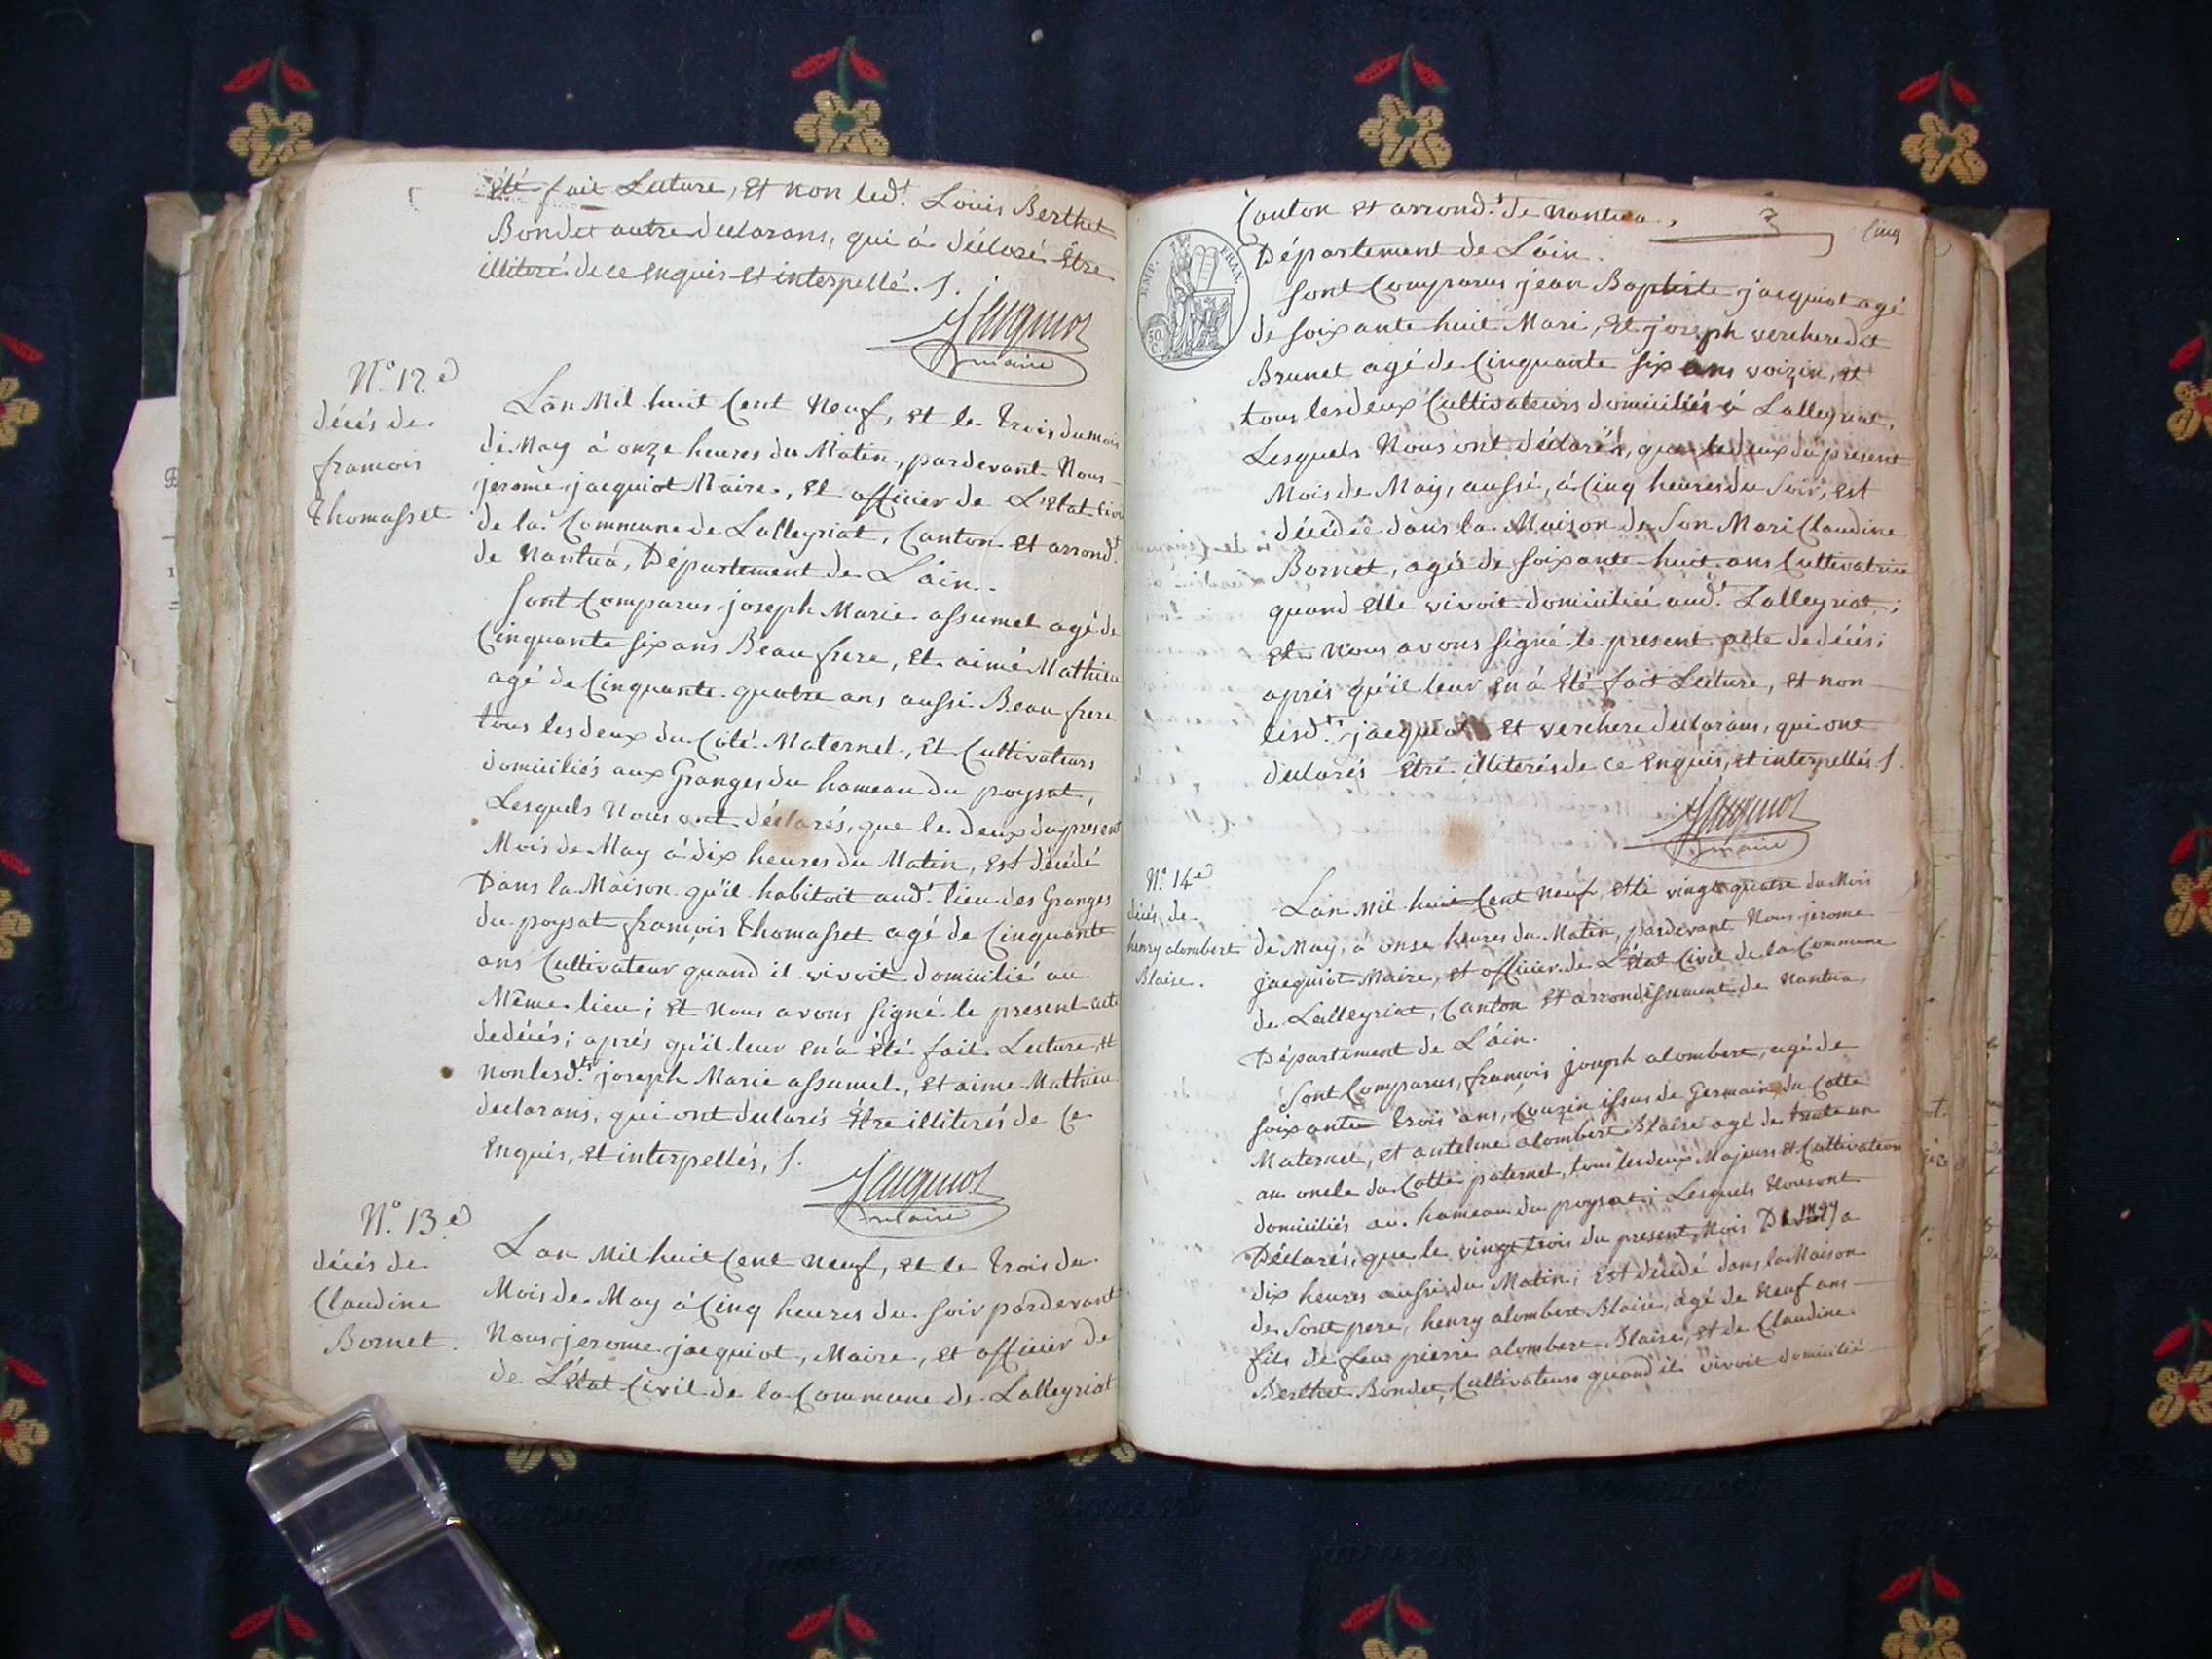 été fait Lecture, et non led.t Louis Berthet
Bondet autre declarans, qui à déclaré Être
illiteré de ce enquis et interpellé. /.
Jacquiot
maire
N.o 12.e
décés de
francois
thomasset
L'an Mil huit Cent Neuf, et le trois du mois
de May à onze heures du Matin, pardevant Nous
jerome jacquiot Maire, et officier de L'etat Civil
de la Commune de Lalleyriat, Canton et arrond.t
de Nantua, Département de L'ain.
Sont Comparus joseph Marie assumel agé de
Cinquante six ans Beau frere, et aimé Mathieu
agé de Cinquante quatre ans aussi Beau frere
tous les deux du Coté Maternel, et Cultivateurs
domiciliés aux Granges du hameau du poysat,
Lesquels Nous ont déclarés, que le deux du present
Mois de May à dix heures du Matin, est décédé
Dans la Maison qu'il habitoit aud.t lieu des Granges
du poysat françois thomasset agé de Cinquante
ans Cultivateur quand il vivoit domicilié au
Même lieu ; et Nous avons signé le present acte
de décés ; aprés qu'il leur en à été fait Lecture et
non lesd.ts joseph Marie assumel, et aime Mathieu
declarans, qui ont declarés Être illiterés de ce
Enquis, et interpellés, /.
Jacquiot
maire
N.o 13.e
décés de
Claudine
Bornet.
L'an Mil huit Cent Neuf, et le trois du
Mois de May à Cinq heures du soir pardevant
Nous jerome jacquiot, Maire, et officier de
de L'état Civil de la Commune de Lalleyriat
Canton et arrond.t de Nantua,
3
Cinq
Département de L'ain.
EMP. FRAN.
50 C.
Sont Comparus jean Baptiste jacquiot agé
de soixante huit Mari, et joseph verchere dit
Brunet agé de Cinquante six ans voizin, et
tous les deux Cultivateurs domiciliés à Lalleyriat,
Lesquels Nous ont déclarés, que le deux du present
Mois de May, aussi, à Cinq heures du soir, est
décédée dans la Maison de son Mari Claudine
Bornet, agée de soixante huit ans Cultivatrice
quand elle vivoit domiciliée aud.t Lalleyriat ;
et Nous avons signé le present acte de décés ;
aprés qu'il leur en à été fait Lecture, et non
lesd.ts jacquiot et verchere declarans, qui ont
declarés Être illiterés de ce Enquis, et interpellés /.
Jacquiot
maire
N.o 14.e
décés de
henry alombert
Blaise.
L'an Mil huit Cent Neuf, et le vingt quatre du Mois
de May, à onze heures du Matin, pardevant Nous jerome
jacquiot Maire, et officier de L'état Civil de la Commune
de Lalleyriat, Canton et arrondissement de Nantua,
Département de L'ain.
Sont Comparus, françois joseph alombert, agé de
soixante trois ans, Couzin issus de Germain du Cotté
Maternel, et antelme alombert Blaise agé de trente un
an oncle du Cotté paternel, tous les deux Majeurs et Cultivateurs
domiciliés au hameau du poysat ; Lesquels Nous ont
Déclarés, que le vingt trois du present Mois De may à
dix heures aussi du Matin ; est décédé dans la Maison
de sont pere, henry alombert Blaise, agé de Neuf ans
fils de feu pierre alombert Blaise, et de Claudine
Berthet Bondet, Cultivateurs quand il vivoit domicilié